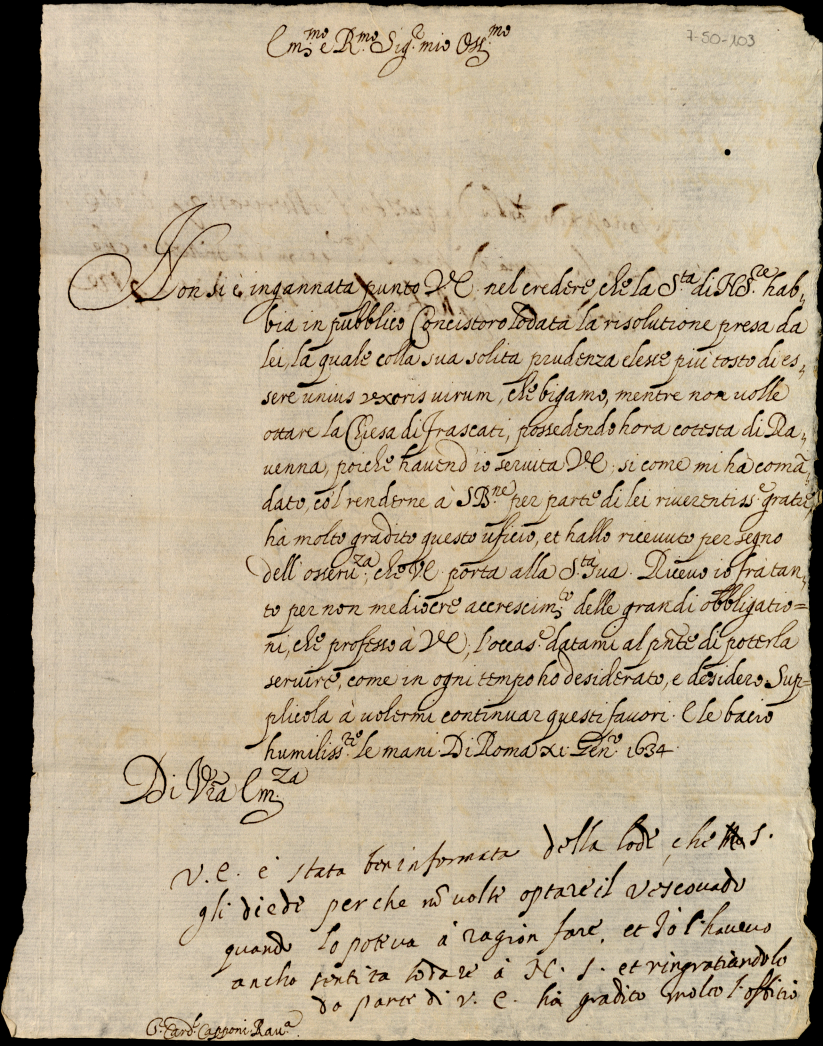 7-50-103
Em.mo e R.mo Sig.r mio Oss.mo
Non si è ingannata punto V.E. nel credere, che la S.tà di N.S.re hab,,
bia in pubblico Concistoro lodata la risolutione presa da
lei, la quale colla sua solita prudenza elesse più tosto di es,,
sere unius uxoris virum, che bigamo, mentre non volle
ottare la Chiesa di Frascati, possedendo hora cotesta di Ra,,
venna, poiche havend'io servita V.E. si come mi hà comã,,
dato, col renderne à S.B.ne per parte di lei riverentiss.e gratie,
hà molto gradito questo uficio, et hallo ricevuto per segno
dell'osseru.za, che V.E. porta alla S.tà Sua. Ricevo io frà tan,,
to per non mediocre accrescim.to delle grandi obbligatio=
ni, che professo à V.E., l'occas.e datami al pnte di poterla
servire, come in ogni tempo ho desiderato, e desidero. Sup=
plicola à volermi continuar questi favori. E le bacio
humiliss.te le mani. Di Roma xi. Gen.ro 1634.
Di Vra Em.za
V. E. è stata ben informata della lode, che S.
gli diede perche nõ volse optare il Vescovado
quando lo poteva à ragion fare, et Jo l'havevo
ancho sentita lodare à N. S. et ringratiandolo
da parte di V. E. ha gradito molto l'offitio
S.r Card.e Capponi Rav.a